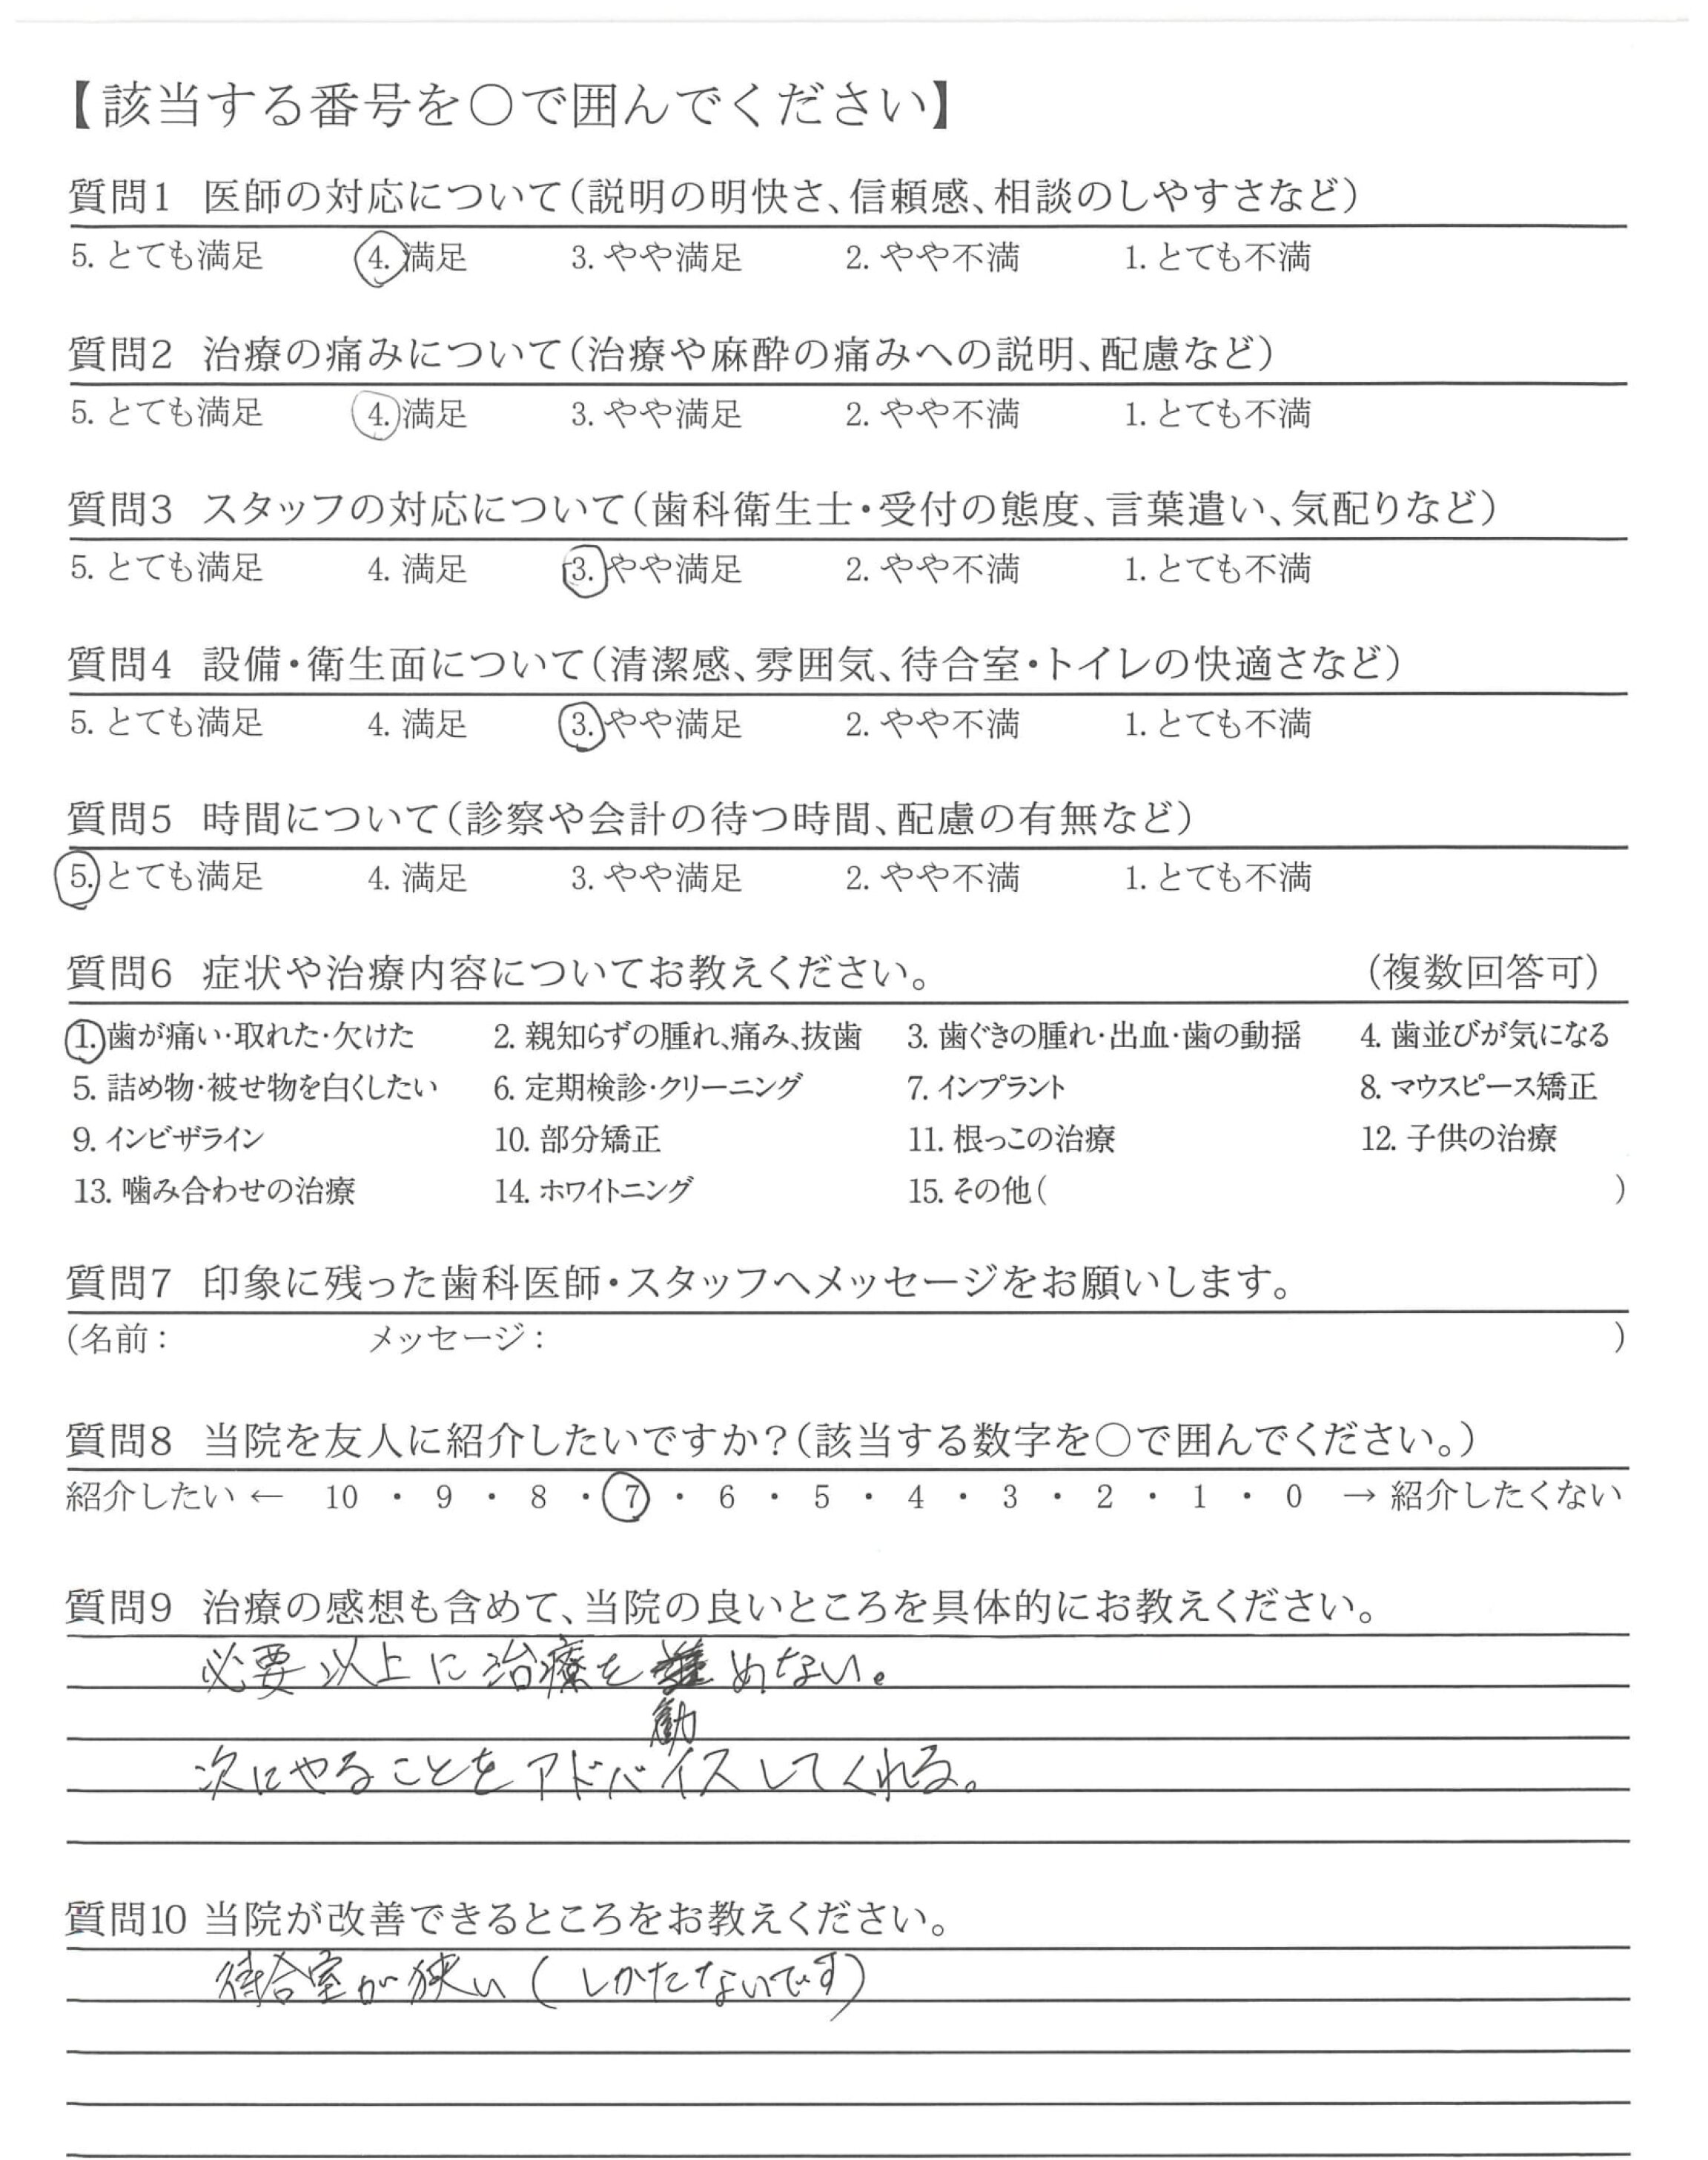 【該当する番号を○で囲んでください】
質問1 医師の対応について(説明の明快さ、信頼感、相談のしやすさなど)
5. とても満足 4. 満足 3. やや満足 2. やや不満 1. とても不満
質問2 治療の痛みについて(治療や麻酔の痛みへの説明、配慮など)
5. とても満足 4. 満足 3. やや満足 2. やや不満 1. とても不満
質問3 スタッフの対応について(歯科衛生士・受付の態度、言葉遣い、気配りなど)
5. とても満足 4. 満足 3. やや満足 2. やや不満 1. とても不満
質問4 設備・衛生面について(清潔感、雰囲気、待合室・トイレの快適さなど)
5. とても満足 4. 満足 3. やや満足 2. やや不満 1. とても不満
質問5 時間について(診察や会計の待つ時間、配慮の有無など)
5. とても満足 4. 満足 3. やや満足 2. やや不満 1. とても不満
質問6 症状や治療内容についてお教えください。 (複数回答可)
1. 歯が痛い・取れた・欠けた 2. 親知らずの腫れ、痛み、抜歯 3. 歯ぐきの腫れ・出血・歯の動揺 4. 歯並びが気になる
5. 詰め物・被せ物を白くしたい 6. 定期検診・クリーニング 7. インプラント 8. マウスピース矯正
9. インビザライン 10. 部分矯正 11. 根っこの治療 12. 子供の治療
13. 噛み合わせの治療 14. ホワイトニング 15. その他( )
質問7 印象に残った歯科医師・スタッフへメッセージをお願いします。
(名前: メッセージ: )
質問8 当院を友人に紹介したいですか?(該当する数字を○で囲んでください。)
紹介したい ← 10 ・ 9 ・ 8 ・ 7 ・ 6 ・ 5 ・ 4 ・ 3 ・ 2 ・ 1 ・ 0 → 紹介したくない
質問9 治療の感想も含めて、当院の良いところを具体的にお教えください。
必要以上に治療を めない。
勧
次にやることをアドバイスしてくれる。
質問10 当院が改善できるところをお教えください。
待合室が狭い(しかたないです)